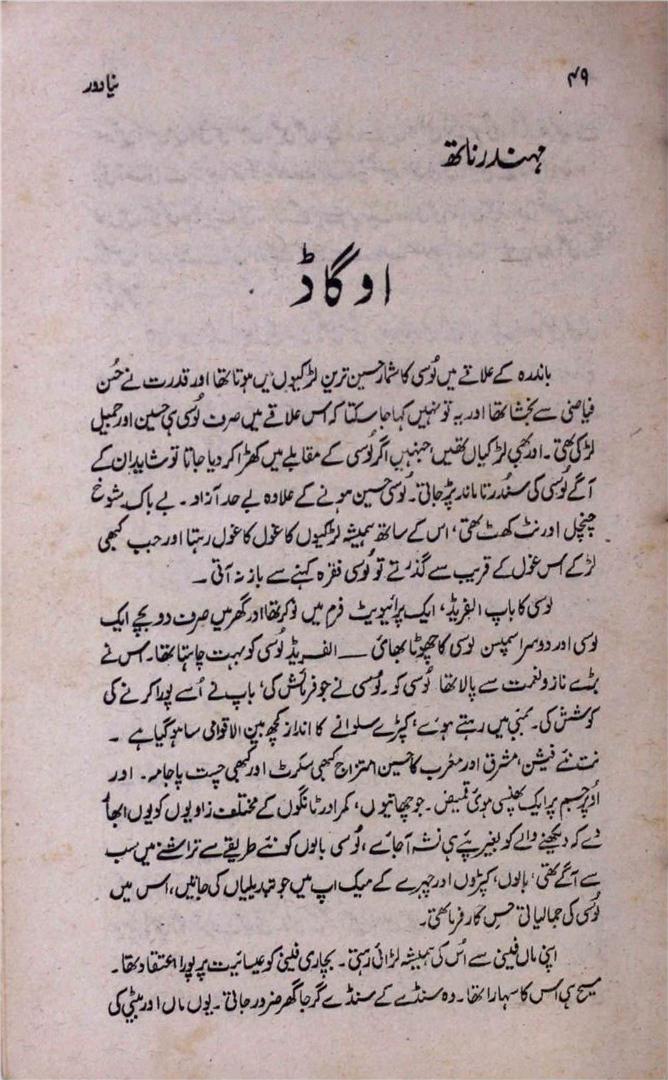 ۴۹
نیا دور
مہندر ناتھ
او گاڈ
باندرہ کے علاقے میں لُوسی کا شمار حسین ترین لڑکیوں میں ہوتا تھا اور قدرت نے حُسن
فیاضی سے بخشا تھا اور یہ تو نہیں کہا جا سکتا کہ اس علاقے میں صرف لُوسی ہی حسین اور جمیل
لڑکی تھی۔ اور بھی لڑکیاں تھیں، جنہیں اگر لُوسی کے مقابلے میں کھڑا کر دیا جاتا تو شاید اِن کے
آگے لُوسی کی سُندرتا ماند پڑ جاتی۔ لُوسی حسین ہونے کے علاوہ بے حد آزاد ۔ بے باک۔ شوخ
چنچل اور نٹ کھٹ تھی، اس کے ساتھ ہمیشہ لڑکیوں کا غول کا غول رہتا اور جب کبھی
لڑکے اس غول کے قریب سے گذرتے تو لُوسی فقرہ کہنے سے باز نہ آتی ۔
لوسی کا باپ الفریڈ، ایک پرائیویٹ فرم میں نوکر تھا اور گھر میں صرف دو بچے ایک
لوسی اور دوسرا سمپسن لوسی کا چھوٹا بھائی ــــ الفریڈ لُوسی کو بہت چاہتا تھا۔ اس نے
بڑے نازونعمت سے پالا تھا لُوسی کو۔ لُوسی نے جو فرمائش کی، باپ نے اُسے پورا کرنے کی
کوشش کی۔ بمبئی میں رہتے ہوئے، کپڑے سلوانے کا انداز کچھ بین الاقوامی سا ہو گیا ہے ۔
نت نئے فیشن، مشرق اور مغرب کا حسین امتزاج کبھی سکرٹ اور کبھی چست پاجامہ۔ اور
اُوپر جسم پر ایک پھنسی ہوئی قمیض ۔ جو چھاتیوں، کمر اور ٹانگوں کے مختلف زاویوں کو یوں ابھار
دے کہ دیکھنے والے کو بغیر پئے ہی نشہ آ جائے، لُوسی بالوں کو نئے طریقے سے تراشنے میں سب
سے آگے تھی، بالوں، کپڑوں اور چہرے کے میک اپ میں جو تبدیلیاں کی جاتیں، اس میں
لُوسی کی جمالیاتی حِس کارفرما تھی۔
اپنی ماں فلینی سے اُس کی ہمیشہ لڑائی رہتی۔ بچاری فلینی کو عیسائیت پر پورا اعتقاد تھا۔
مسیح ہی اس کا سہارا تھا۔ وہ سنڈے کے سنڈے گرجا گھر ضرور جاتی۔ یوں ماں اور بیٹی کی